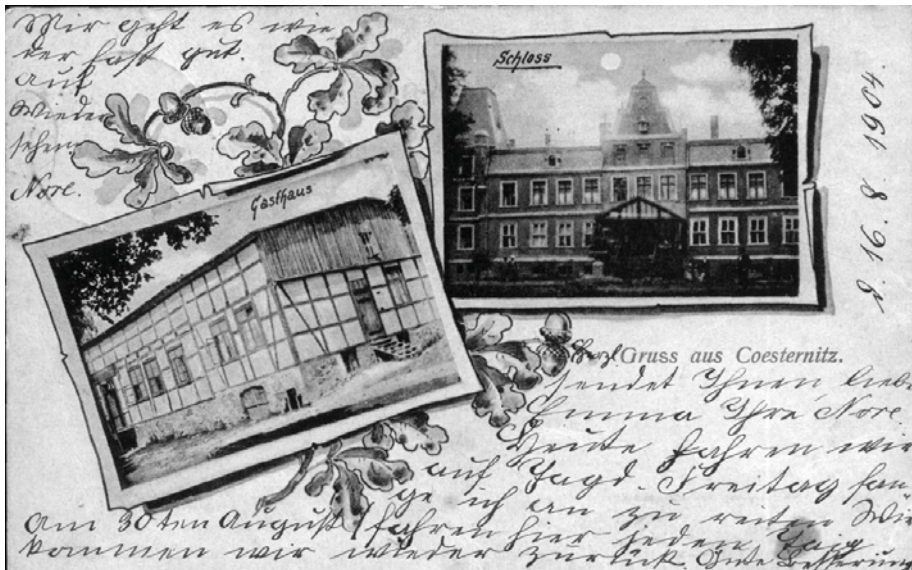 Mir geht es wie-
der fast gut.
Auf
Wieder
sehen
Nore.
Schloss
Gasthaus
d. 16. 8. 1904
Herzl. Gruss aus Coesternitz.
sendet Ihnen liebe
Emma Ihre Nore.
Heute fahren wir
auf Jagd. Freitag fan
ge ich an zu reiten Wir
fahren hier jeden Tag
Am 30ten August
kommen wir wieder zurück. Gute Besserung